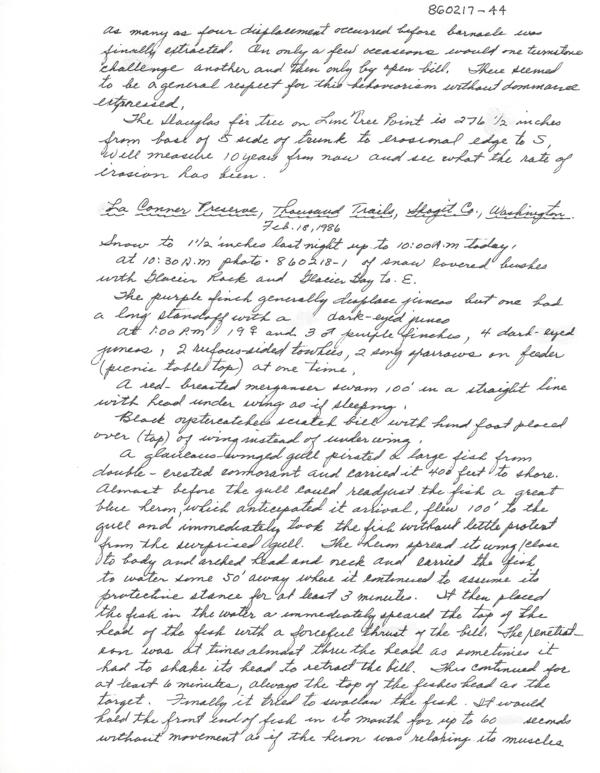 860217-44
as many as four displacement occurred before barnacle was
finally extracted. On only a few occasions would one turnstone
challenge another and then only by open bill. There seemed
to be a general respect for this behaviorism without dominance
expressed.
The Douglas fir tree on Lime Tree Point is 276 1/2 inches
from base of S side of trunk to erosional edge to S,
Will measure 10 years from now and see what the rate of
erosion has been.
La Conner Preserve, Thousand Trails, Skagit Co., Washington.
Feb. 18, 1986
Snow to 1 1/2 inches last night up to 10:00 A.m today.
at 10:30 A.m photo. 860218-1 of snow covered bushes
with Glacier Rock and Glacier Bay to E.
The purple finch generally displace juncos but one had
a long standoff with a dark-eyed junco
at 1:00 P.m 19♀ and 3♂ purple finches, 4 dark-eyed
juncos, 2 rufous-sided towhies, 2 song sparrows on feeder
(picnic table top) at one time.
A red-breasted merganser swam 100' in a straight line
with head under wing as if sleeping.
Black oystercatchers scratch bill with hind foot placed
over (top) of wing instead of under wing.
A glaucous-winged gull pirated a large fish from
double-crested cormorant and carried it 400 feet to shore.
Almost before the gull could readjust the fish a great
blue heron, which anticipated it arrival, flew 100' to the
gull and immediately took the fish without little protest
from the surprised gull. The heron spread its wing close
to body and arched head and neck and carried the fish
to water some 50' away where it continued to assume its
protective stance for at least 3 minutes. It then placed
the fish in the water a immediately speared the top of the
head of the fish with a forceful thrust of the bill. The penetrat-
ion was at times almost thru the head as sometimes it
had to shake its head to retract the bill. This continued for
at least 6 minutes, always the top of the fishes head as the
target. Finally it tried to swallow the fish. It would
hold the front end of fish in its mouth for up to 60 seconds
without movement as if the heron was relaxing its muscles